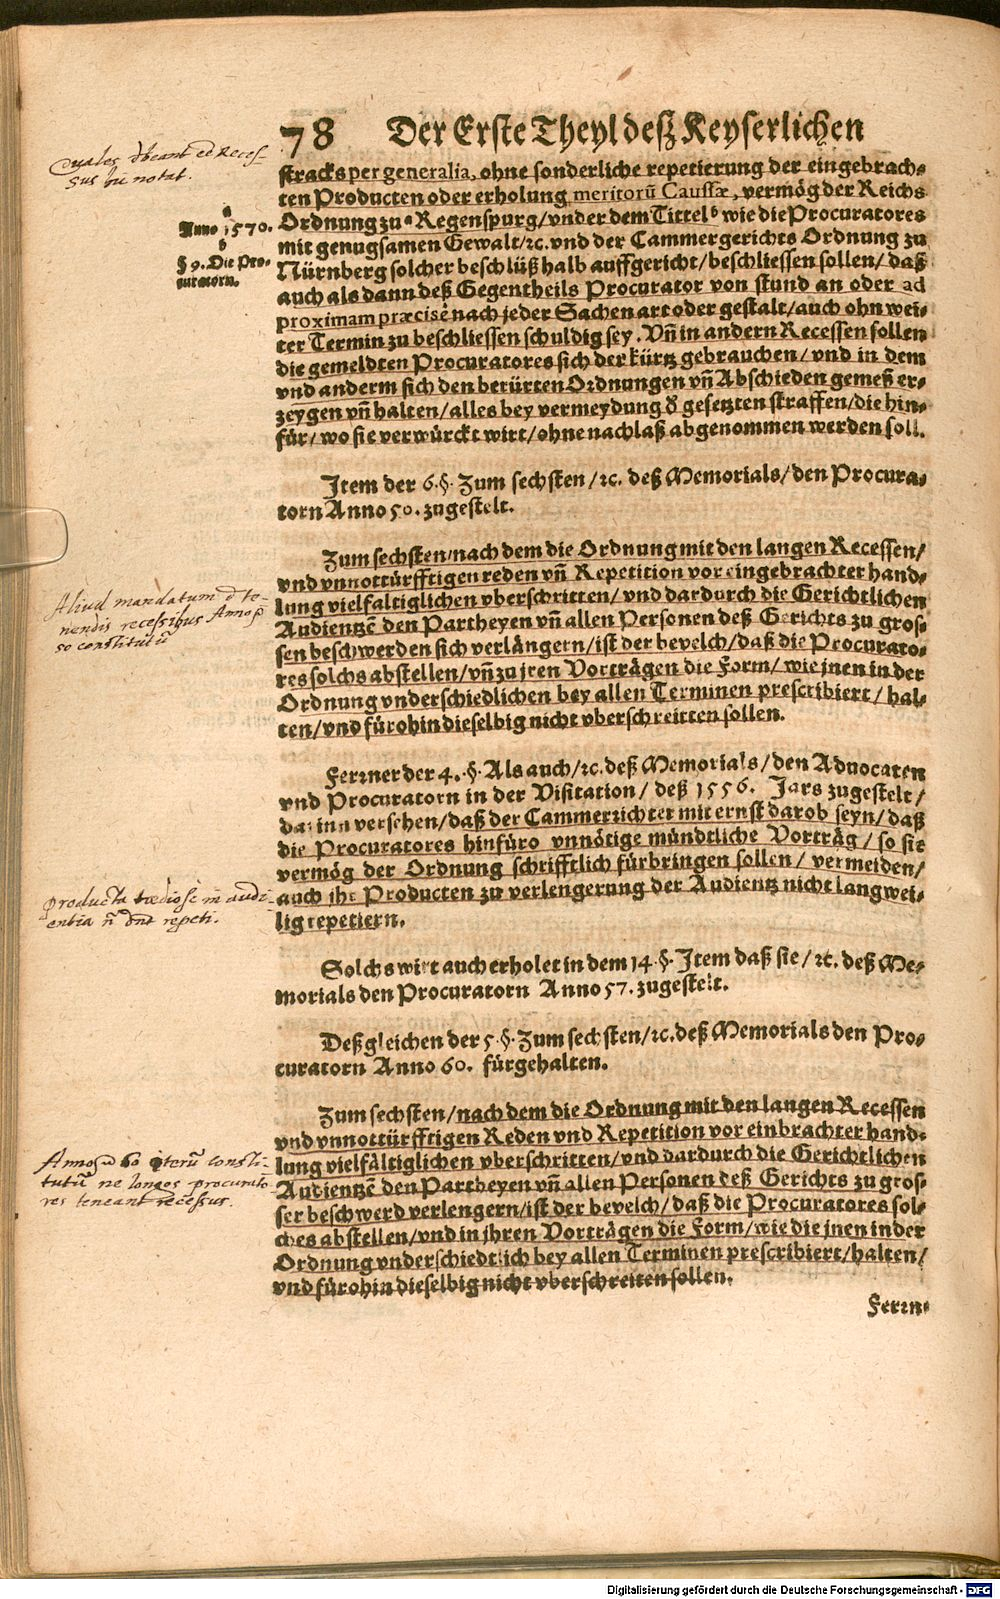 78 Der Erste Theyl deß Keyserlichen
stracks per generalia, ohne sonderliche repetierung der eingebrach⸗
ten Producten oder erholung meritorū Caussæ, vermög der Reichs
Ordnung zu ᵃ Regenspurg/ vnder dem Tittel ᵇ wie die Procuratores
mit genugsamen Gewalt/ ꝛc. vnd der Cammergerichts Ordnung zu
Nürnberg solcher beschlüß halb auffgericht/ beschliessen sollen/ daß
auch als dann deß Gegentheils Procurator von stund an oder ad
proximam præcisè nach jeder Sachen art oder gestalt/ auch ohn wei⸗
ter Termin zu beschliessen schuldig sey. Vñ in andern Recessen sollen
die gemeldten Procuratores sich der kürtz gebrauchen/ vnd in dem
vnd anderm sich den berürten Ordnungen vñ Abschieden gemeß er⸗
zeygen vñ halten/ alles bey vermeydung d' gesetzten straffen/ die hin⸗
für/ wo sie verwürckt wirt/ ohne nachlaß abgenommen werden soll.
Jtem der 6. §. Zum sechsten/ ꝛc. deß Memorials/ den Procura⸗
torn Anno 50. zugestelt.
Zum sechsten/ nach dem die Ordnung mit den langen Recessen/
vnd vnnottürfftigen reden vñ Repetition vor eingebrachter hand⸗
lung vielfaltiglichen vberschritten/ vnd dardurch die Gerichtlichen
Audientzē den Partheyen vñ allen Personen deß Gerichts zu gros⸗
sen beschwerden sich verlängern/ ist der bevelch/ daß die Procurato⸗
res solchs abstellen/ vñ zu jren Vorträgen die Form/ wie jnen in der
Ordnung vnderschiedlichen bey allen Terminen prescribiert/ hal⸗
ten/ vnd fürohin dieselbig nicht vberschreitten sollen.
Ferrner der 4. §. Als auch/ ꝛc. deß Memorials/ den Advocaten
vnd Procuratorn in der Visitation/ deß 1556. Jars zugestelt/
darinn versehen/ daß der Cammerrichter mit ernst darob seyn/ daß
die Procuratores hinfüro vnnötige mündtliche Vorträg/ so sie
vermög der Ordnung schrifftlich fürbringen sollen/ vermeiden/
auch ihr Producten zu verlengerung der Audientz nicht langwei⸗
lig repetiern.
Solchs wirt auch erholet in dem 14. §. Jtem daß sie/ ꝛc. deß Me⸗
morials den Procuratorn Anno 57. zugestelt.
Deßgleichen der 5. §. Zum sechsten/ ꝛc. deß Memorials den Pro⸗
curatorn Anno 60. fürgehalten.
Zum sechsten/ nach dem die Ordnung mit den langen Recessen
vnd vnnottürfftigen Reden vnd Repetition vor einbrachter hand⸗
lung vielfältiglichen vberschritten/ vnd dardurch die Gerichtlichen
Audientzē den Partheyen vñ allen Personen deß Gerichts zu gros⸗
ser beschwerd verlengern/ ist der bevelch/ daß die Procuratores sol⸗
ches abstellen/ vnd in jhren Vorträgen die Form/ wie die jnen in der
Ordnung vnderschiedtlich bey allen Terminen prescribiert/ halten/
vnd fürohin dieselbig nicht vberschreiten sollen.
Ferrn⸗
quales debeant eē Reces⸗
sus hic notat.
a
Anno 1570.
b
§ 9. Die Pro⸗
curatorn.
Aliud mandatum d te⸗
nendis recessibus Anno
50 constitutū
producta tædiose in audi⸗
entia n̄ dnt repeti.
Anno 60 iterū consti⸗
tutū ne longos procurato
res teneant recessus.
Digitalisierung gefördert durch die Deutsche Forschungsgemeinschaft - DFG